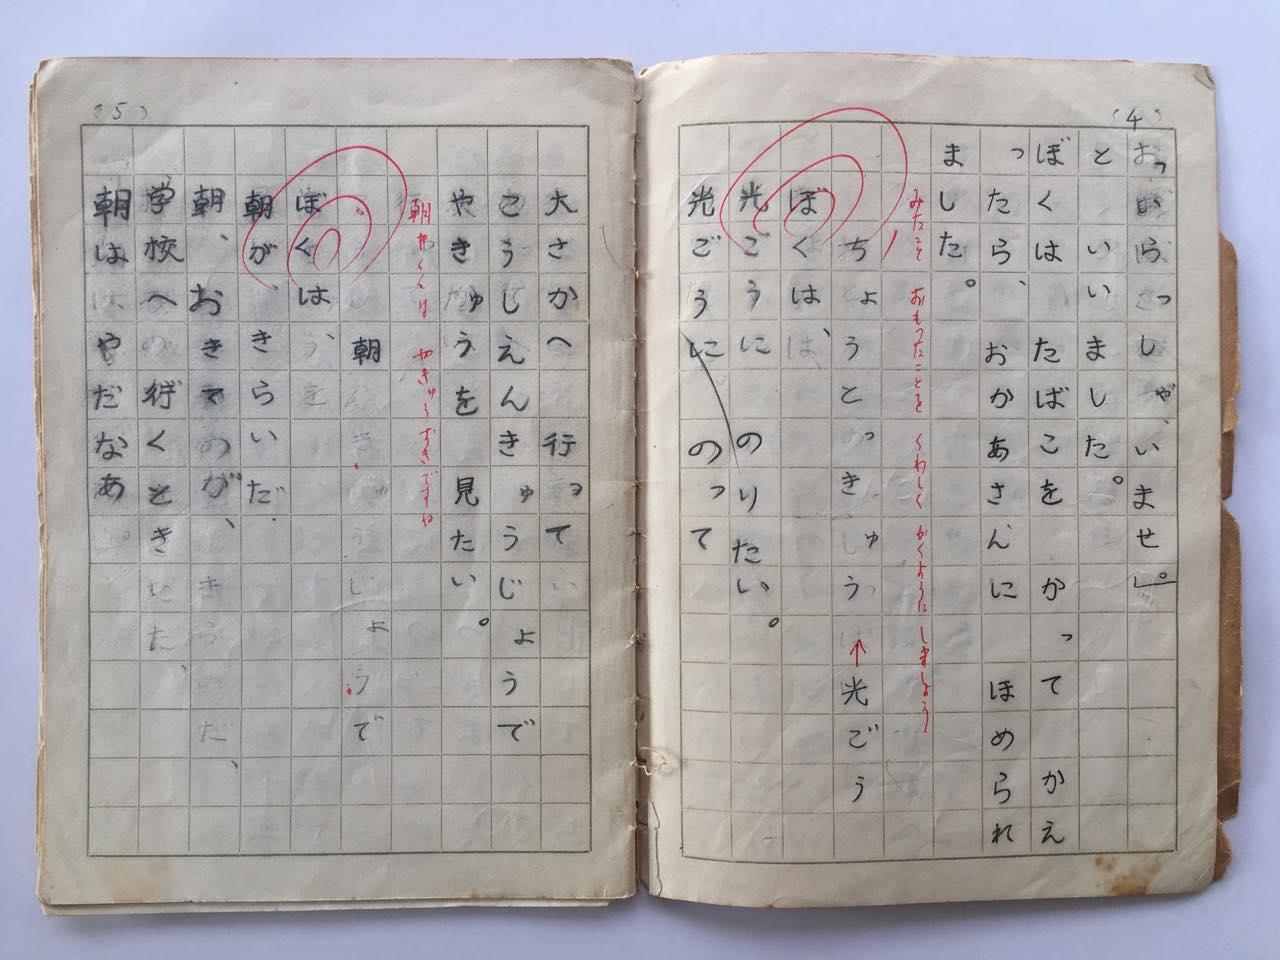 (4)
おっいらっしゃいませ。」
と いいました。
ぼくは たばこを かって かえ
ったら、おかあさんに ほめられ
ました。
みたこと おもったことを くわしく かくように しましょう
ちょうとっきゅう 光ごう
ぼくは、
光ごうに のりたい。
光ごうに のって
(5)
大さかへ 行って
こうしえんきゅうじょうで
やきゅうを 見たい。
は やきゅうずきですね
朝
ぼくは
朝が、きらいだ
朝、おきるのが、きらいだ、
学校へ 行くとき
朝は やだなあ